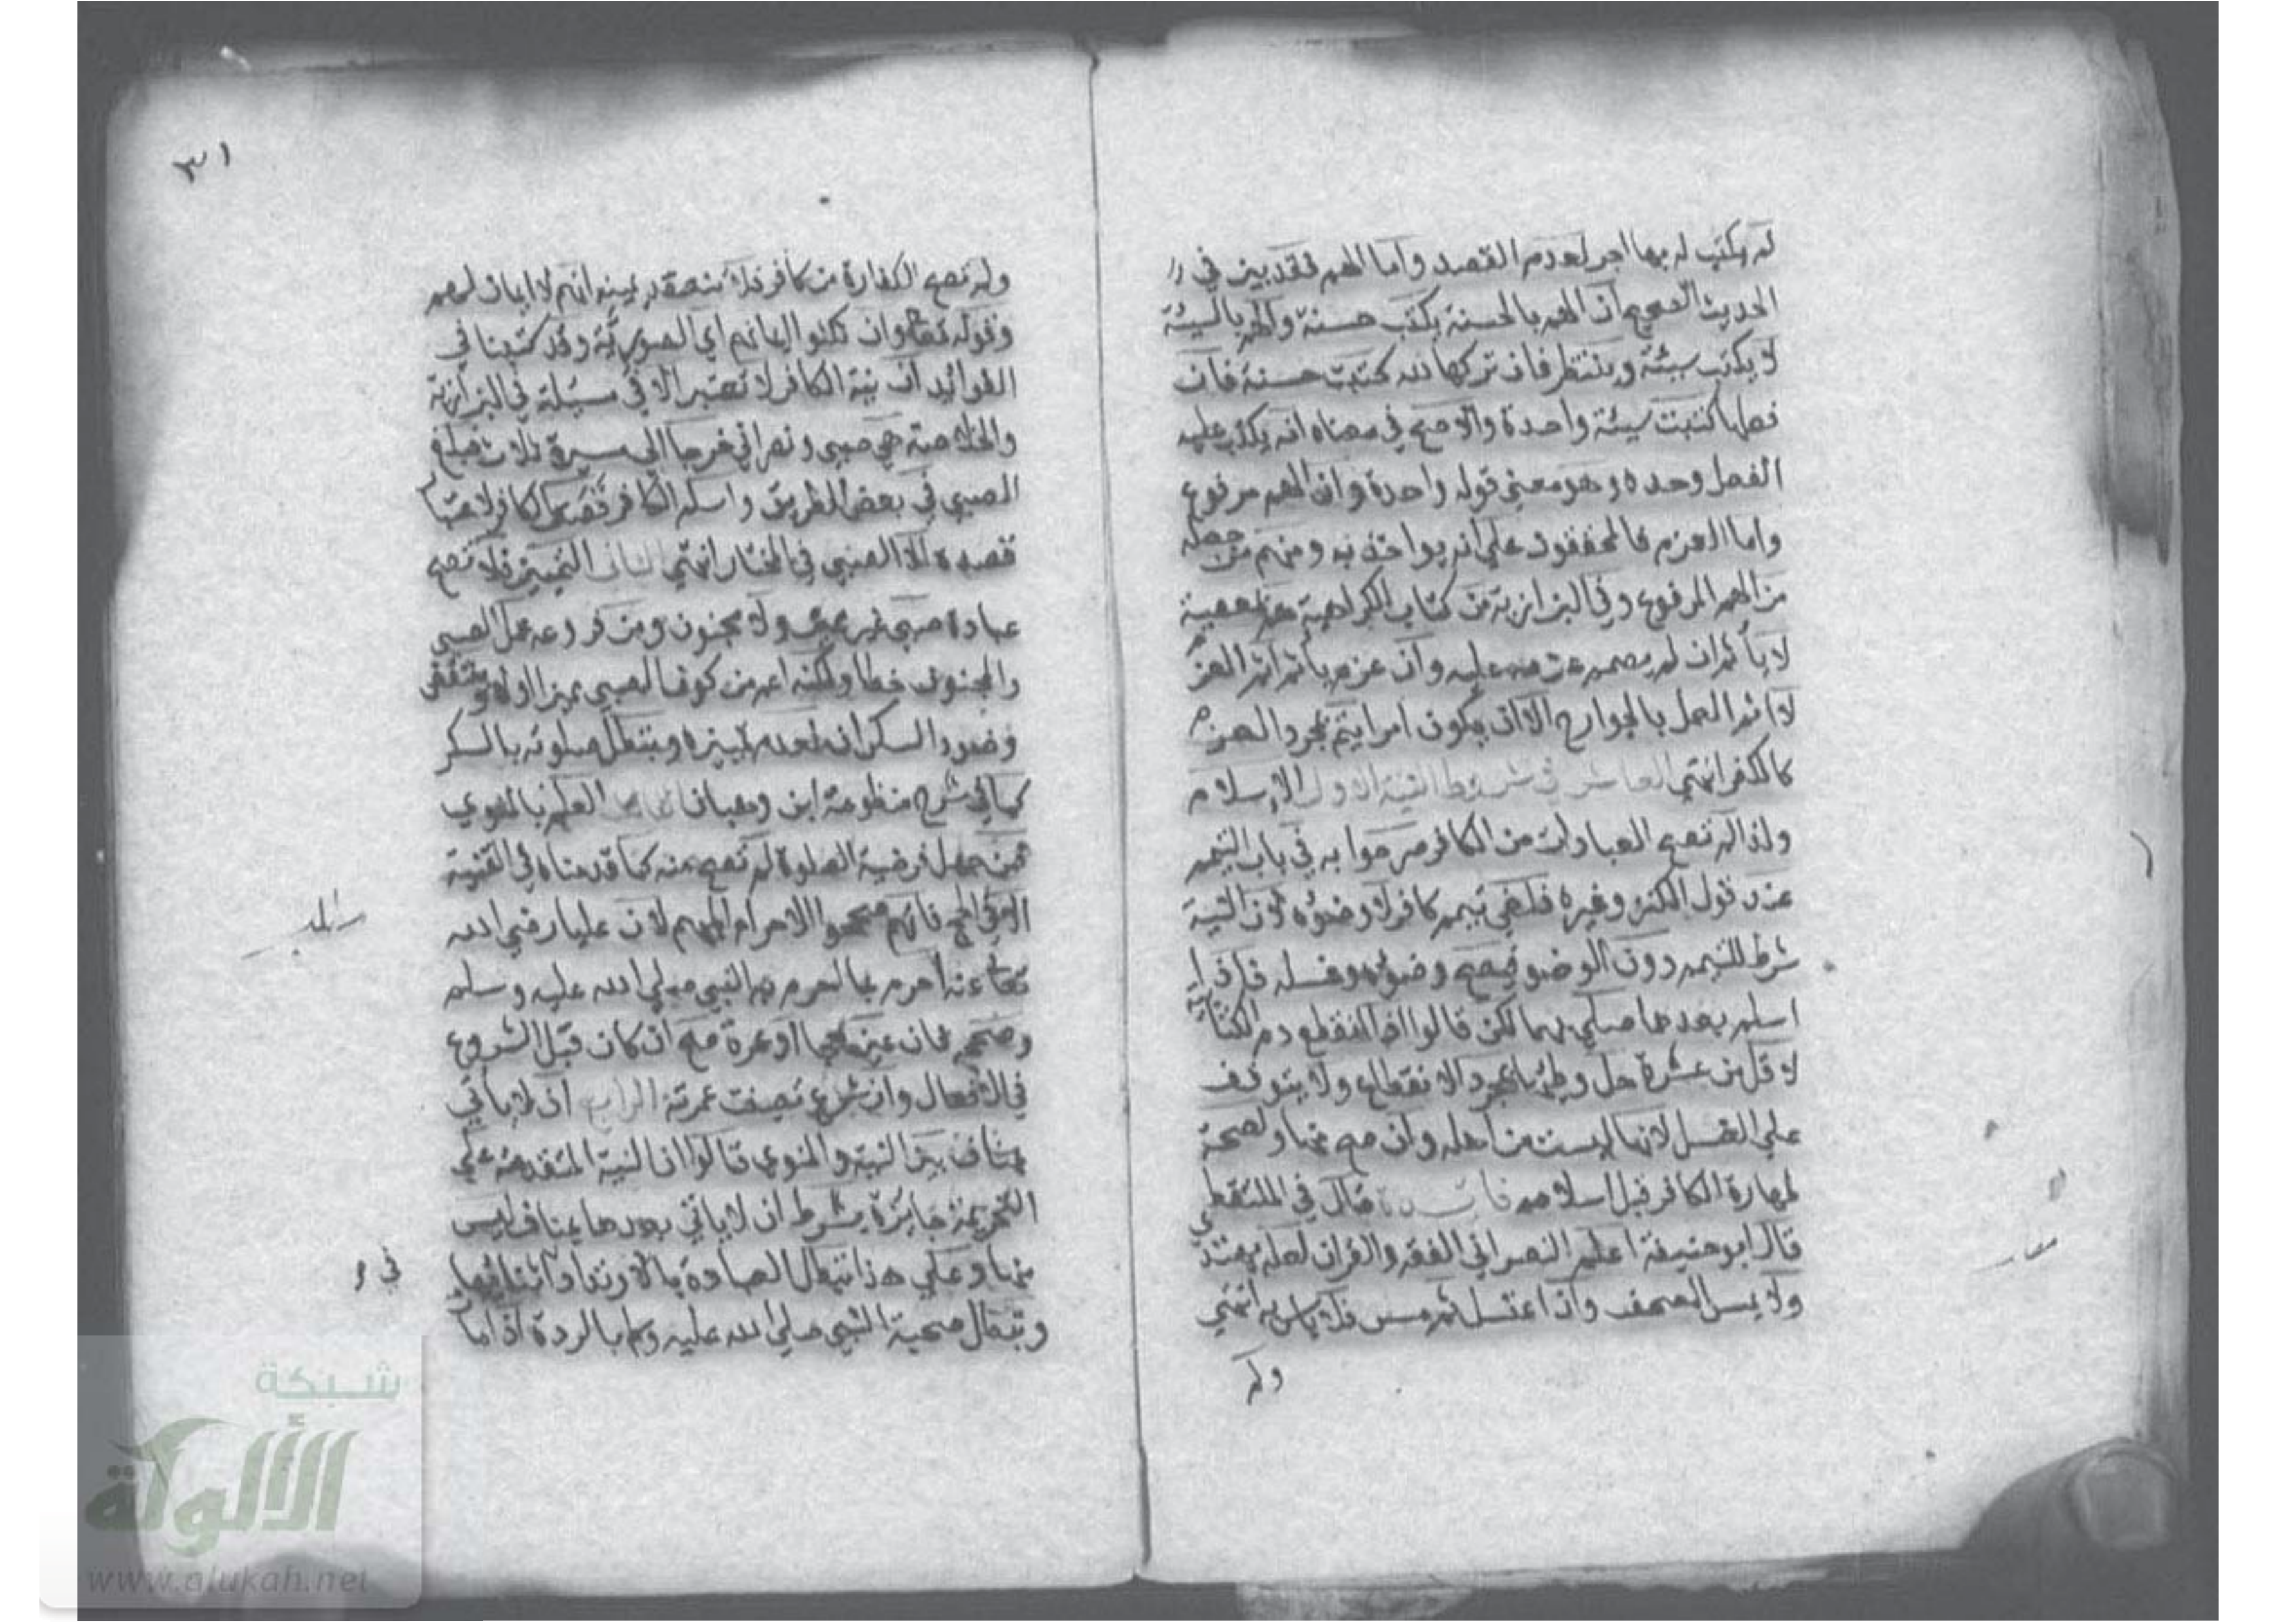 لم يكتب له بها اجر لعدم القصد واما الهم فقد بين في
الحديث الصحيح ان الهم بالحسنة يكتب حسنة والهم بالسيئة
لا يكتب سيئة وينتظر فان تركها لله كتبت حسنة فان
فعلها كتبت سيئة واحدة والاصح في معناه انه يكتب عليه
الفعل وحده وهو معني قوله واحدة وان الهم مرفوع
واما العزم فالمحققون علي انه يواخذ به ومنهم من جعله
من الهم المرفوع وفي البزازية من كتاب الكراهية هم بمعصية
لا ياثم ان لم يصمم عزمه عليه وان عزم ياثم اثم العزم
لا اثم العمل بالجوارح الا ان يكون امرا يتم بمجرد العزم
كالكفر انتهي العاشر في شروط النية الاول الاسلام
ولذا لم تصح العبادات من الكافر صرحوا به في باب التيمم
عند قول الكنز وغيره فلغي تيمم كافر لا وضوءه لان النية
شرط للتيمم دون الوضو فيصح وضوءه وغسله فاذا
اسلم بعدها صلي بهما لكن قالوا اذا انقطع دم الكتابية
لاقل من عشرة حل وطئها بمجرد الانقطاع ولا يتوقف
علي الغسل لانها ليست من اهله وان صح منها ولصحة
طهارة الكافر قبل اسلامه فائدة قال في الملتقط
قال ابو حنيفة اعلم النصراني الفقه والقران لعله يهتدي
ولا يمس المصحف وان اغتسل ثم مس فلا باس به انتهي
ولم
٣١
ولم تصح الكفارة من كافر فلا تنعقد يمينه انهم لا ايمان لهم
وقوله تعالي وان نكثوا ايمانهم اي الصورية وقد كتبنا في
الفوائد ان نية الكافر لا تعتبر الا في مسئلة في البزازية
والخلاصة هي صبي ونصراني خرجا الي مسيرة ثلاث فبلغ
الصبي في بعض الطريق واسلم الكافر قصر الكافر لاعتبار
قصده لا الصبي في المختار انتهي الثاني التمييز فلا تصح
عبادة صبي غير مميز ولا مجنون ومن فروعه عمل الصبي
والمجنون خطا ولكنه اعم من كون الصبي مميزا اولا وينتقض
وضوء السكران لعدم تمييزه وتبطل صلوته بالسكر
كما في شرح منظومة ابن وهبان الثالث العلم بالمنوي
فمن جهل فرضية الصلوة لم تصح منه كما قدمناه في القنية
الا في الحج فانهم صححوا الاحرام المبهم لان عليا رضي الله
تعالي عنه احرم بما احرم به النبي صلي الله عليه وسلم
وصححه فان عين حجا او عمرة صح ان كان قبل الشروع
في الافعال وان شرع تعينت عمرته الرابع ان لا ياتي
بمناف بين النية والمنوي قالوا ان النية المتقدمة علي
التحريمة جايزة بشرط ان لا ياتي بعدها بمناف ليس
منها وعلي هذا تبطل العبادة بالارتداد اثنائها
في
وتبطل صحبة النبي صلي الله عليه وسلم بالردة اذا مات
شبكة
الألوكة
www.alukah.net